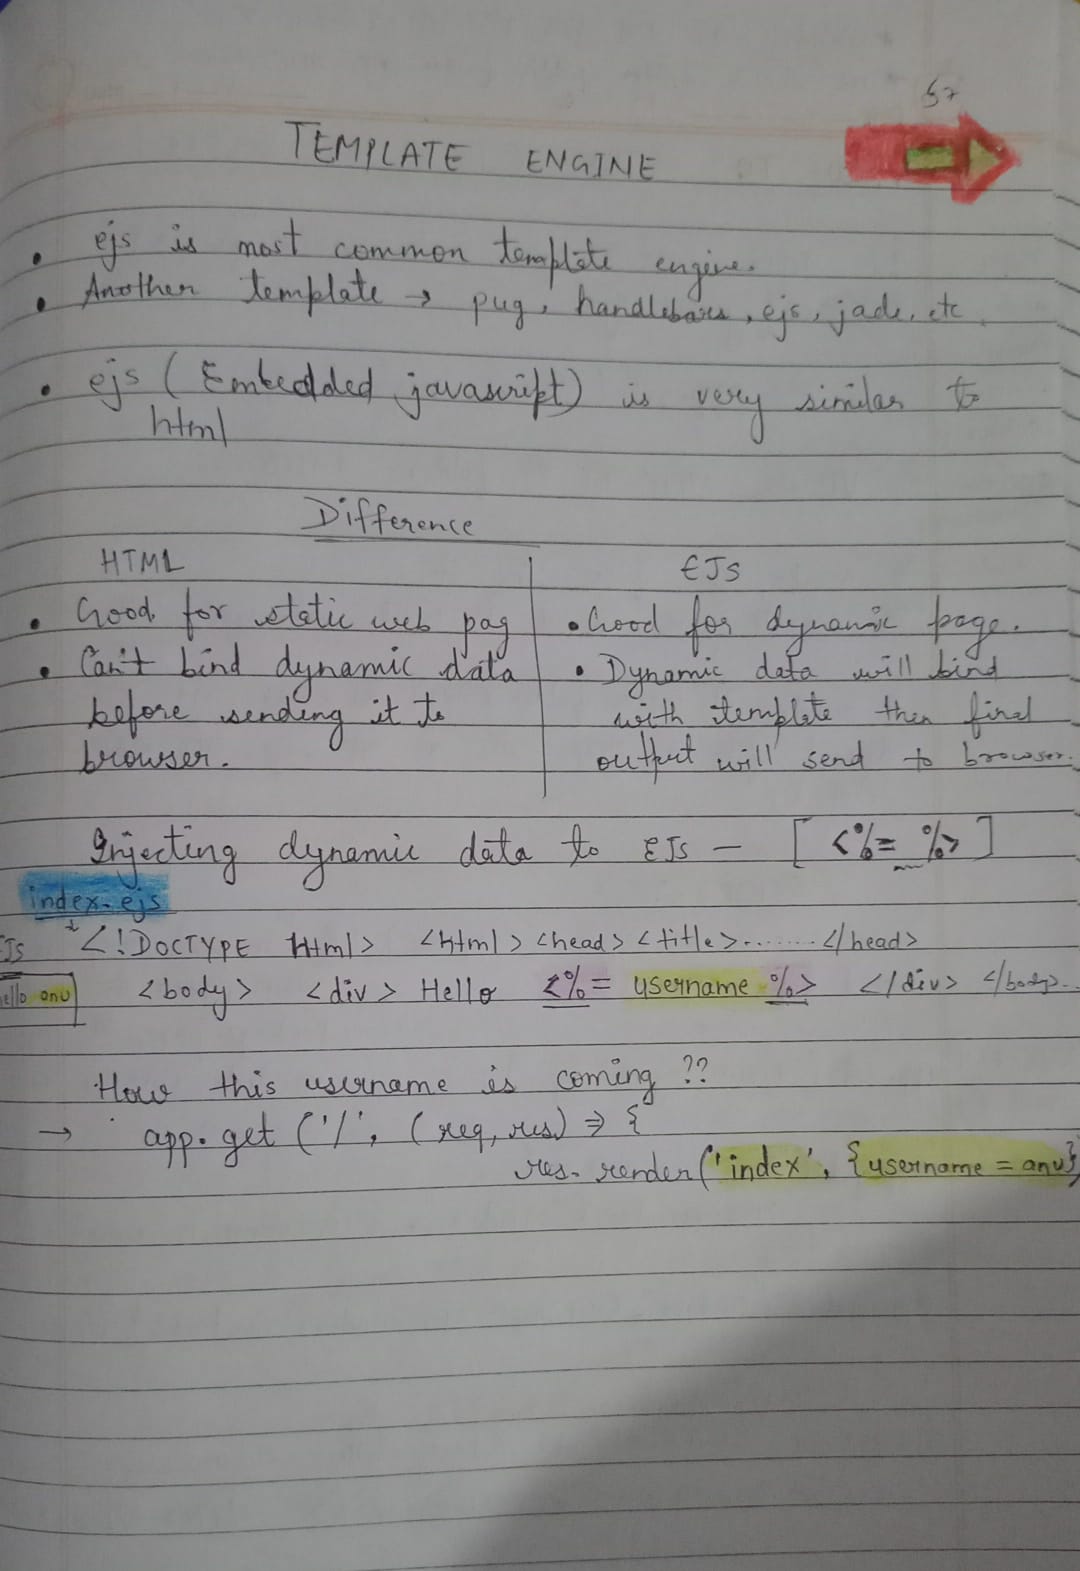 57
TEMPLATE ENGINE
• ejs is most common template engine.
• Another template → pug, handlebars, ejs, jade, etc
• ejs (Embedded javascript) is very similar to
html
Difference
HTML
EJS
• Good for static web pag
• Can't bind dynamic data
before sending it to
browser.
• Good for dynamic page.
• Dynamic data will bind
with template then final
output will send to browser.
Injecting dynamic data to EJs - [ <%= %> ]
index.ejs
<!DOCTYPE html> <html> <head> <title>........</head>
<body> <div> Hello <%= username %> </div> </body>..
ello anu
How this username is coming ??
→ app.get ('/', (req, res) => {
res. render('index', {username = anu}